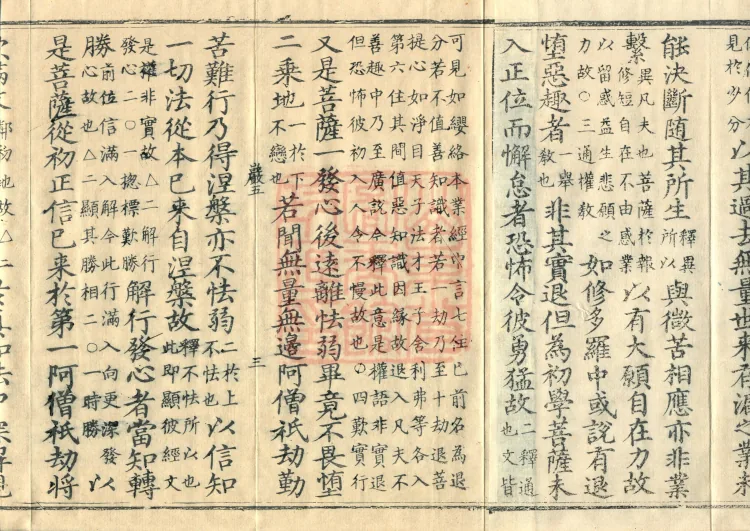 見於少分以其過去無量世來有漏之業未
能決斷隨其所生釋異所以與微苦相應亦非業
繫異凡夫也菩薩於報修短自在不由惑業以有大願自在力故
以留惑益生悲願之力故○三通權教如修多羅中或說有退
墮惡趣者一舉敘也非其實退但為初學菩薩未
入正位而懈怠者恐怖令彼勇猛故二釋通也文皆
可見如纓絡本業經中言七住已前名為退
分若不值善知識者若一劫乃至十劫退菩
提心如淨目天子法才王子舍利弗等各入
第六住其間值惡知識因緣故退入凡夫不
善趣中乃至廣說今釋此意是權語非實退
但恐怖彼初入人令不慢故也○四歎實行
又是菩薩一發心後遠離怯弱畢竟不畏墮
二乘地一於下不戀也若聞無量無邊阿僧祇劫勤
嚴五 三
苦難行乃得涅槃亦不怯弱二於上不怯也以信知
一切法從本已來自涅槃故釋不怯所以也此即顯彼經文
是權非實故△二解行發心二○一總標歎勝解行發心者當知轉
勝前位信滿入解今此行滿入向更深發勝心故也△二顯其勝相二○一時勝以
是菩薩從初正信已來於第一阿僧祇劫將